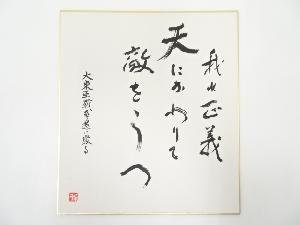 我は正義
天にかわりて
敵をうつ
大東亜戦